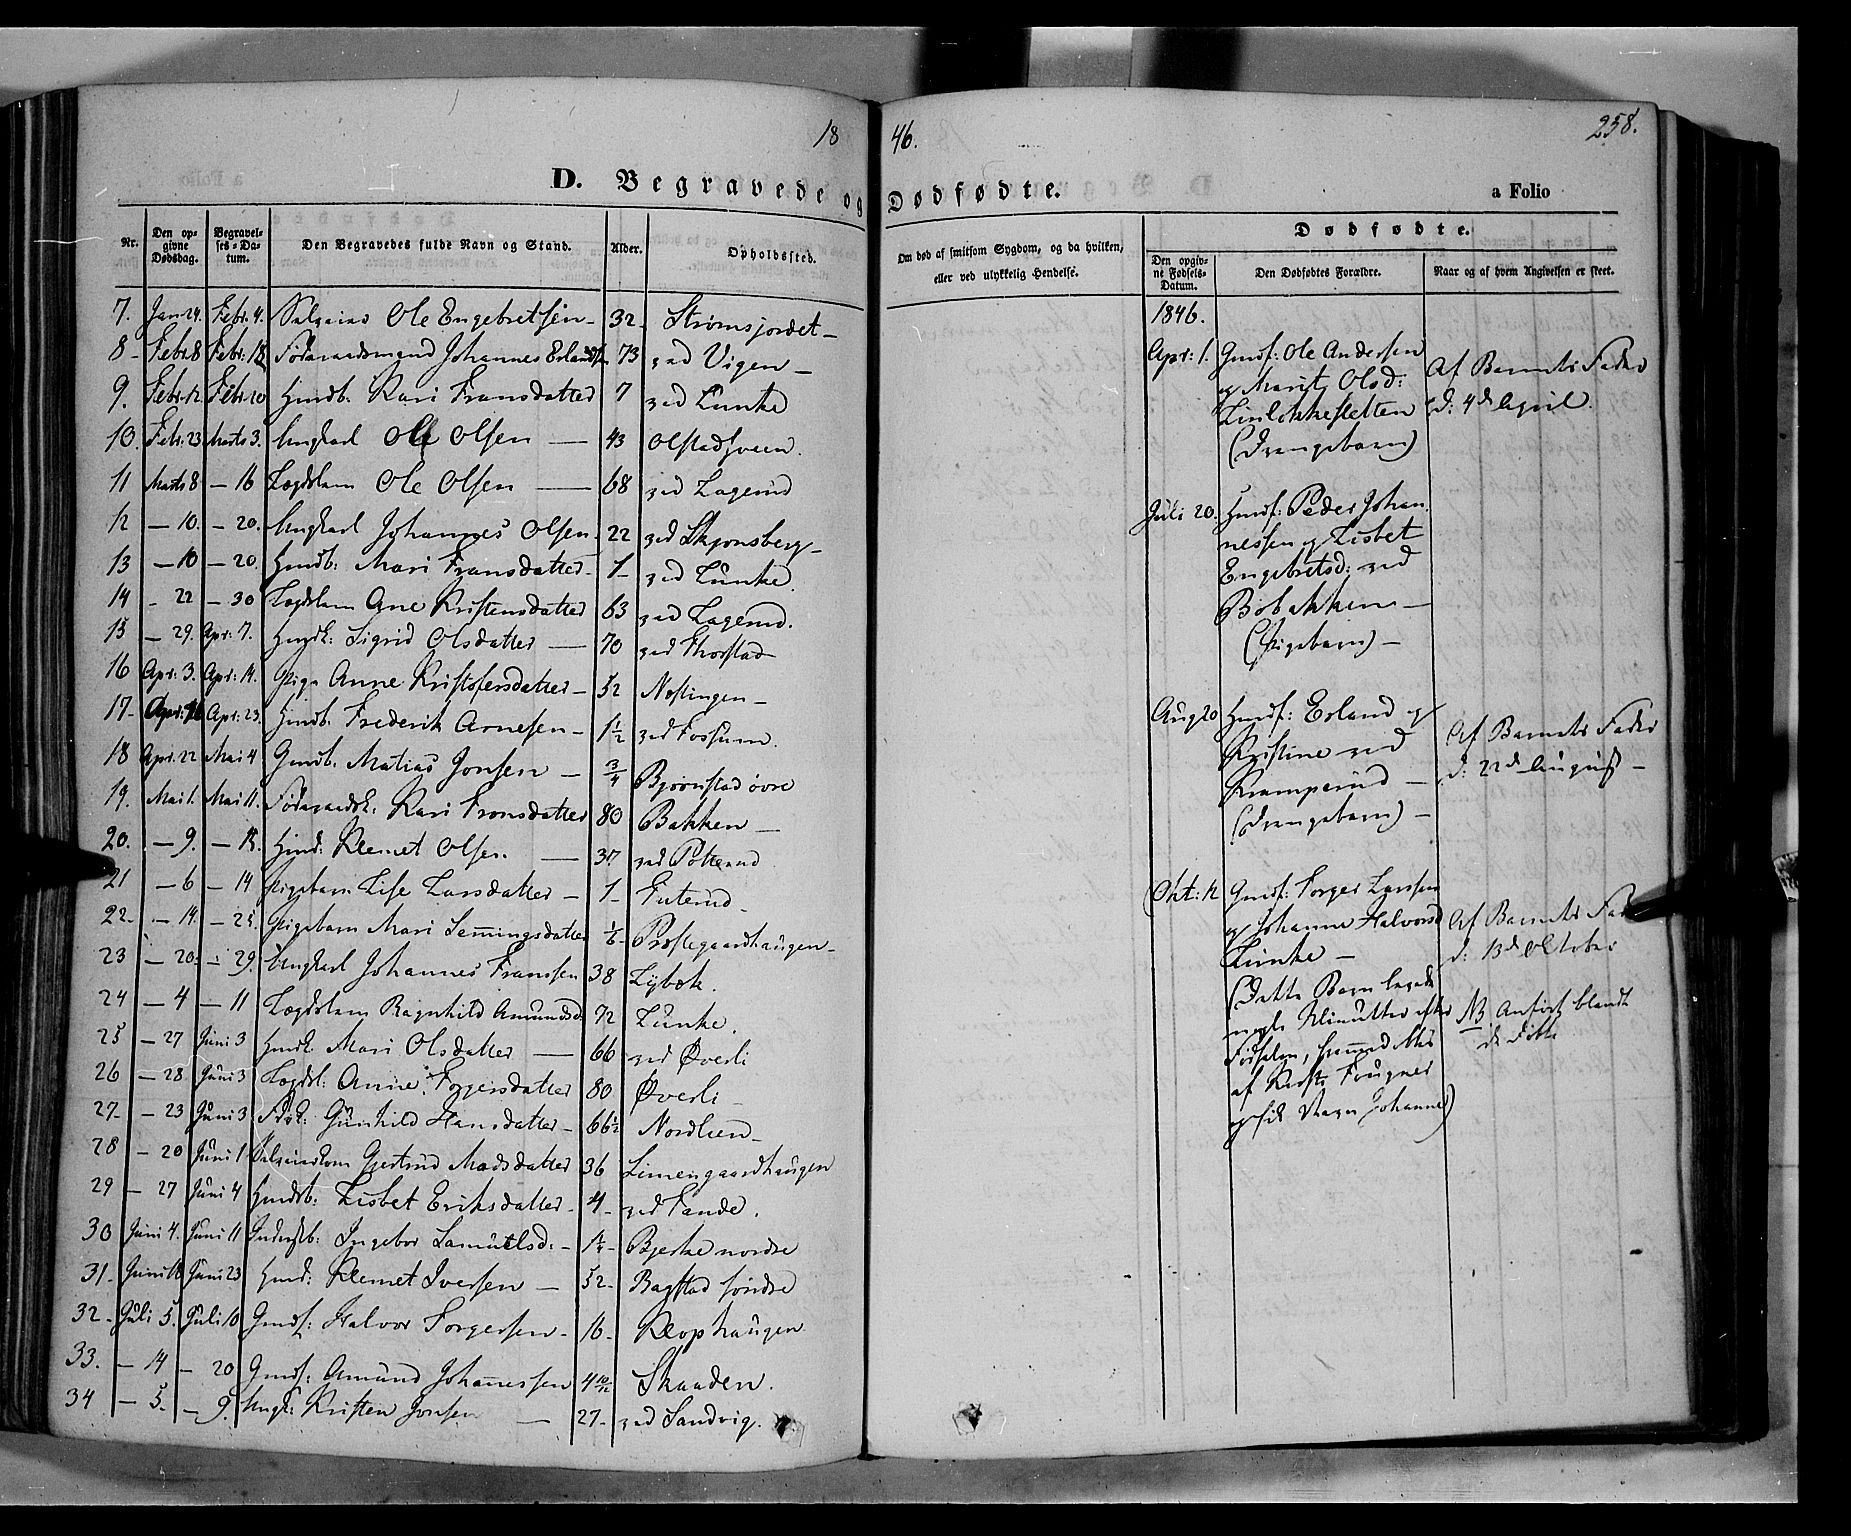 18
46.
258.
D. Begravede og
Dødfødte.
a Folio
Nr.
Den opgivne Dødsdag.
Begravelses-Datum.
Den Begravedes fulde Navn og Stand.
Alder.
Opholdssted.
Om død af smitsom Sygdom, og da hvilken, eller ved ulykkelig Hendelse.
Dødfødte.
Den opgivne Fødsels-Datum.
Den Dødfødtes Forældre.
Naar og af hvem Angivelsen er skeet.
7. Jan 24. Febr. 4. Ole Engebretsen 32. Strømsjordet
8 Febr. 8 Febr. 18 Føderaadsmand Johannes Erlands. 73 ved Vigen
9. Febr. 12. Febr. 20 Hmdb. Kari Fransdatter 7 ved Lunke
10. Febr. 23 Marts 3. Ungkarl Ole Olsen 43 Olstadsveen.
11 Marts 8 — 16 Lægdslem Ole Olsen 68 ved Lagerud
12 — 10. — 20. Ungkarl Johannes Olsen 22 ved Skjønsberg
13 — 10 — 20. Hmdb: Mari Fransdatter 1 ved Lunke
14 — 22 — 30 Lægdslem Ane Kristensdatter 63 ved Lagerud.
15 — 29. Apr: 7. Hmdk: Sigrid Olsdatter 70 ved Thorstad
16 Apr: 3. Apr: 14. Pige Anne Kristofersdatter 52 Nostingen
17 Apr: 16 Apr: 23. Hmdb. Frederik Arnesen 1½ ved Fossum.
18 Apr. 22 Mai 4 Gmdb. Matias Jonsen ¾ Bjørnstad øvre
19. Mai 1. Mai 11. Føderaadsk: Kari Fronsdatter 80 Bakken
20. — 9. — 18. Hmd: Klemet Olsen 37 ved Potterud
21 — 6 — 14 Pigebarn Lise Larsdatter 1 Futerud
22 — 14. — 25. Pigebarn Mari Lemingsdatter ⅙ Prostegaardhaugen
23 — 20. — 29. Ungkarl Johannes Fransen 38 Lybæk.
24 — 4 — 11 Lægdslem Ragnhild Amundsd. 72 Lunke.
25 — 27 Juni 3 Hmdk. Mari Olsdatter 66 ved Øverli
26 — 28 Juni 3 Lægdsl: Anne Torgersdatter 80 Øverli
27 — 23 Juni 3 Gunhild Hansdatter 66½ Nordlien
28 — 20 Juni 1 Gjertrud Madsdatter 36 Limengaardhaugen
29 — 27 Juni 4 Hmdsb: Lisbet Eriksdatter 4 ved Sande.
30 Juni 4. Juni 11 Inderstb: Ingebor Samuelsd: 1¼ Bjerke nordre
31. Juni 18 Juni 23 Hmd: Klemet Iversen 52 Bagstad søndre
32 Juli 5. Juli 10 Gmdf: Halvor Torgersen 16 Klophaugen
33. — 14 — 20 Gmdf: Amund Johannessen 4 10/12 Skaaden.
34 — 5. — 9. Ungk: Kristen Jonsen 27 ved Sandvig.
1846.
Apr: 1. Gmdf: Ole Andersen
og Marit Olsd:
Linløkksletten
(Drengebarn)
Af Barnets Fader
d: 4de April.
Juli 20. Hmdf: Peder Johan
nessen og Lisbet
Engebretsd: ved
Bobakken
(Pigebarn)
Aug 20 Hmdf: Erland og
Kristine ved
Kramperud
(Drengebarn)
Af Barnets Fader
d: 22de August
Okt: 12 Gmdf: Torger Larsen
og Johanne Halvorsd
Lunke
(Dette Barn levede
nogle Minutter efter
Fødselen, hjemmedøbtes
af Frugner
og fik Navn Johanne)
Af Barnets Fader
d: 13de Oktober
NB Anført blandt
de Døbte